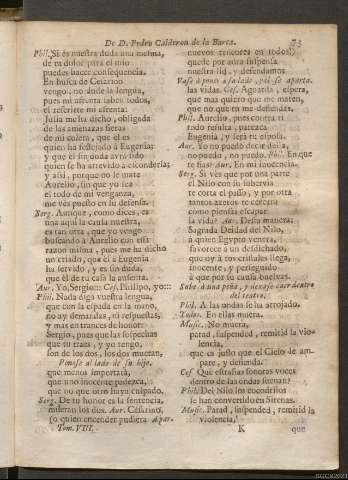 De D. Pedro Calderon de la Barca. 73
Phil. Si es nuestra duda una mesma,
de tu dolor para el mio
puedes hacer consequencia.
En busca de Cesarino
vengo: no dude la lengua,
pues mi afrenta saben todos,
el referirte mi afrenta:
Julia me ha dicho, obligada
de las amenazas fieras
de mi colera, que él es
quien ha festejado à Eugenia;
y que él sin duda avrà sido
quien se ha atrevido à esconderla;
y assi, porque no le mate
Aurelio, sin que yo sea
el todo de mi venganza,
me vès puesto en su defensa.
Serg. Aunque, como dices, es
una aqui la causa nuestra,
es tan otra, que yo vengo
buscando à Aurelio con essa
razon misma, pues me ha dicho
un criado, que él à Eugenia
ha servido, y es sin duda,
que él de tu casa la ausenta.
Aur. Yo, Sergio:: Ces. Philipo, yo::
Phil. Nada diga vuestra lengua,
que con la espada en la mano,
no ay demandas, ni respuestas,
y mas en trances de honor:
Sergio, pues que las sospechas
que tu traìs, y yo tengo,
son de los dos, los dos mueran.
Ponese al lado de su hijo.
que menos importarà,
que uno inocente padezca,
que no que otro huya culpado.
Serg. De tu honor es la sentencia,
mueran los dos. Aur. Cesarino,
(ò quien encender pudiera Apar.
Tom. VIII.
nuevos rencores en todos!)
quede por aora suspensa
nuestra lid, y defendamos
Passe à poner à su lado, y él se aparta.
las vidas. Ces. Aguarda, espera,
que mas quiero que me maten,
que no que tu me defiendas.
Phil. Aurelio, pues contra ti
todo resulta, parezca
Eugenia, y serà tu esposa.
Aur. Yo no puedo decir della,
no puedo, no puedo. Phil. En que
te fias? Aur. En mi inocencia.
Serg. Si vès que por una parte
el Nilo con su sobervia
te corta el passo, y por otra
tantos azeros te cercan,
còmo piensas escapar
la vida? Aur. Desta manera:
Sagrada Deidad del Nilo,
à quien Egypto venera,
favorece à un desdichado,
que oy à tus cristales llega,
inocente, y perseguido
à que por su causa buelvas.
Sube à una peña, y dexase caer dentro
del teatro.
Phil. A las ondas se ha arrojado.
Todos. En ellas muera.
Music. No muera,
parad, suspended, remitid la vio-
lencia,
que es justo que el Cielo de am-
pare, y defienda.
Ces. Què estrañas sonoras voces
dentro de las ondas suenan?
Phil. Del Nilo los cocodrilos
se han convertido en Sirenas.
Music. Parad, suspended, remitid la
violencia,
K que